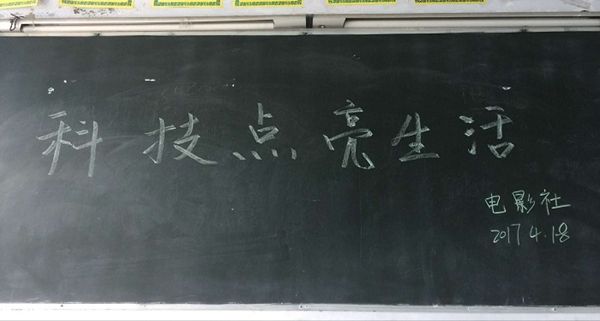 科技点亮生活
电影社
2017.4.18